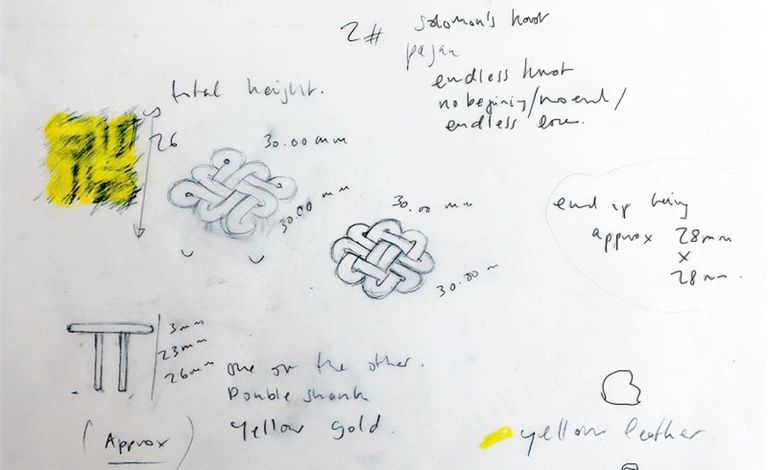 2#
solomon's knot
pagan
endless knot
no begining/no end/
endless love.
total height.
26
30.00 mm
30.00 mm
30.00 mm
30.00 m
end up being
approx 28mm
x
28mm.
3mm
23mm
26mm
one on the other.
Double shank
yellow gold.
(Approx)
yellow leather